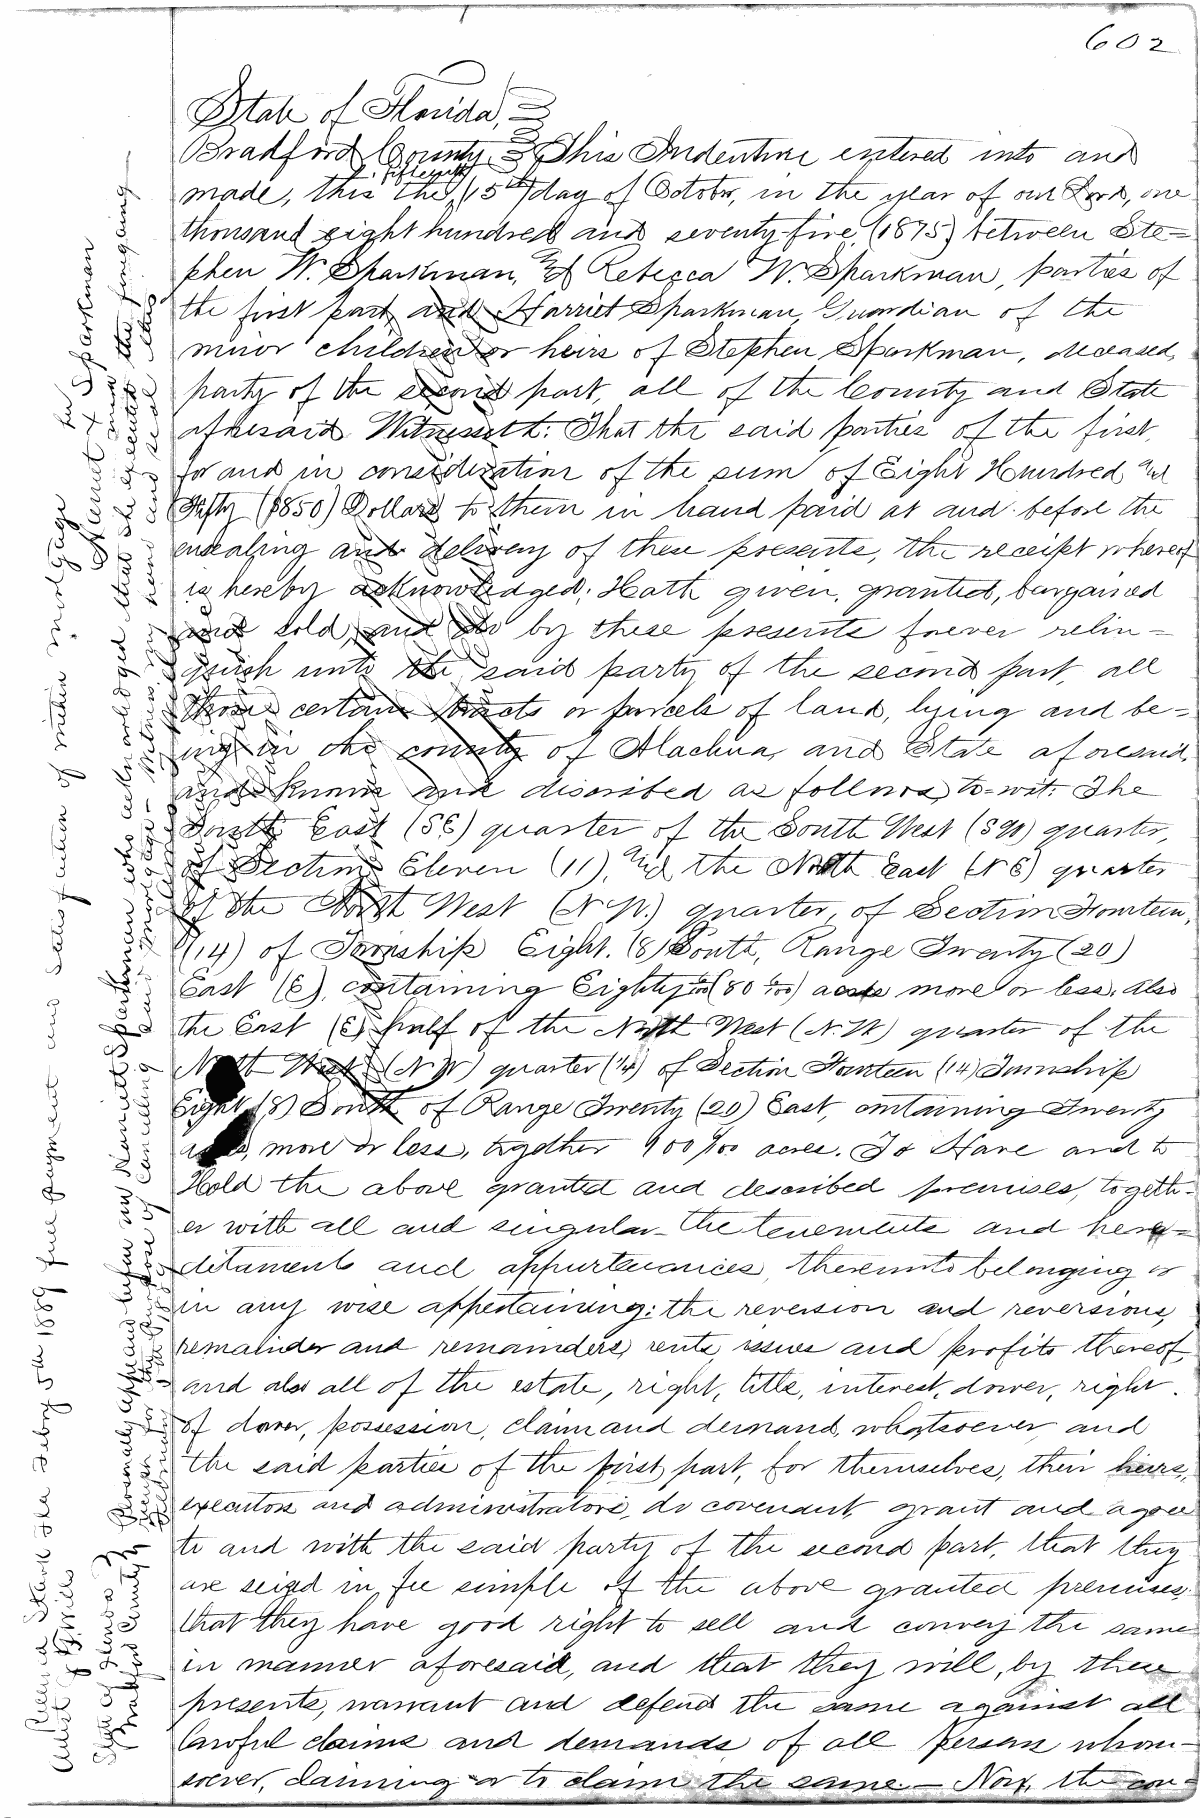 602
State of Florida,
Bradford County This Indenture entered into and
made, this the fifteenth (15th) day of October, in the year of our Lord, one
thousand eight hundred and seventy five, (1875) between Ste=
phen W. Sparkman, & Rebecca W. Sparkman, parties of
the first part, and Harriet Sparkman Guardian of the
minor children or heirs of Stephen Sparkman, deceased,
party of the second part, all of the County and State
aforesaid Witnesseth: That the said parties of the first,
for and in consideration of the sum of Eight Hundred and
Fifty ($850) Dollars to them in hand paid at and before the
ensealing and delivery of these presents, the receipt whereof
is hereby acknowledged; Hath given, granted, bargained
and sold, and do by these presents forever relin=
quish unto the said party of the second part, all
those certain tracts or parcels of land, lying and be=
ing in the county of Alachua, and State aforesaid,
and known and discribed as follows, to-wit: The
South East (SE) quarter of the South West (SW) quarter,
of Section Eleven (11), and the North East (NE) quarter
of the North West (N.W.) quarter, of Section Fourteen,
(14) of Township Eight. (8) South, Range Twenty (20)
East (E), containing Eighty (80 /100) acres more or less. Also
the East (E) half of the North West (N.W) quarter of the
North West (N.W) quarter (1/4) of Section Fourteen (14) Township
Eight (8) South of Range Twenty (20) East, containing Twenty
acres, more or less, together /100 acres. To Have and to
Hold the above granted and described premises, togeth-
er with all and singular the tenements and here=
ditaments and appurtenances, thereunto belonging or
in any wise appertaining: the reversion and reversions,
remainder and remainders, rents, issues and profits thereof,
and also all of the estate, right, title, interest, dower, right
of dower, possession, claim and demand, whatsoever, and
the said parties of the first part, for themselves, their heirs,
executors and administrators, do covenant, grant and agree
to and with the said party of the second part, that they
are seized in fee simple of the above granted premises,
that they have good right to sell and convey the same
in manner aforesaid, and that they will, by these
presents, warrant and defend the same against all
lawful claims and demands of all Person whom-
soever, claiming or to claim the same. — Now, the con-
Received Starke Fla Feby 5th 1889 full payment and satisfaction of within mortgage
her
Attest Harriet X Sparkman
mark
State of Florida
Bradford County Personally appeared before me Harriet Sparkman who acknowledged that she executed the foregoing
for the purpose of cancelling said mortgage – Witness my hand and seal this